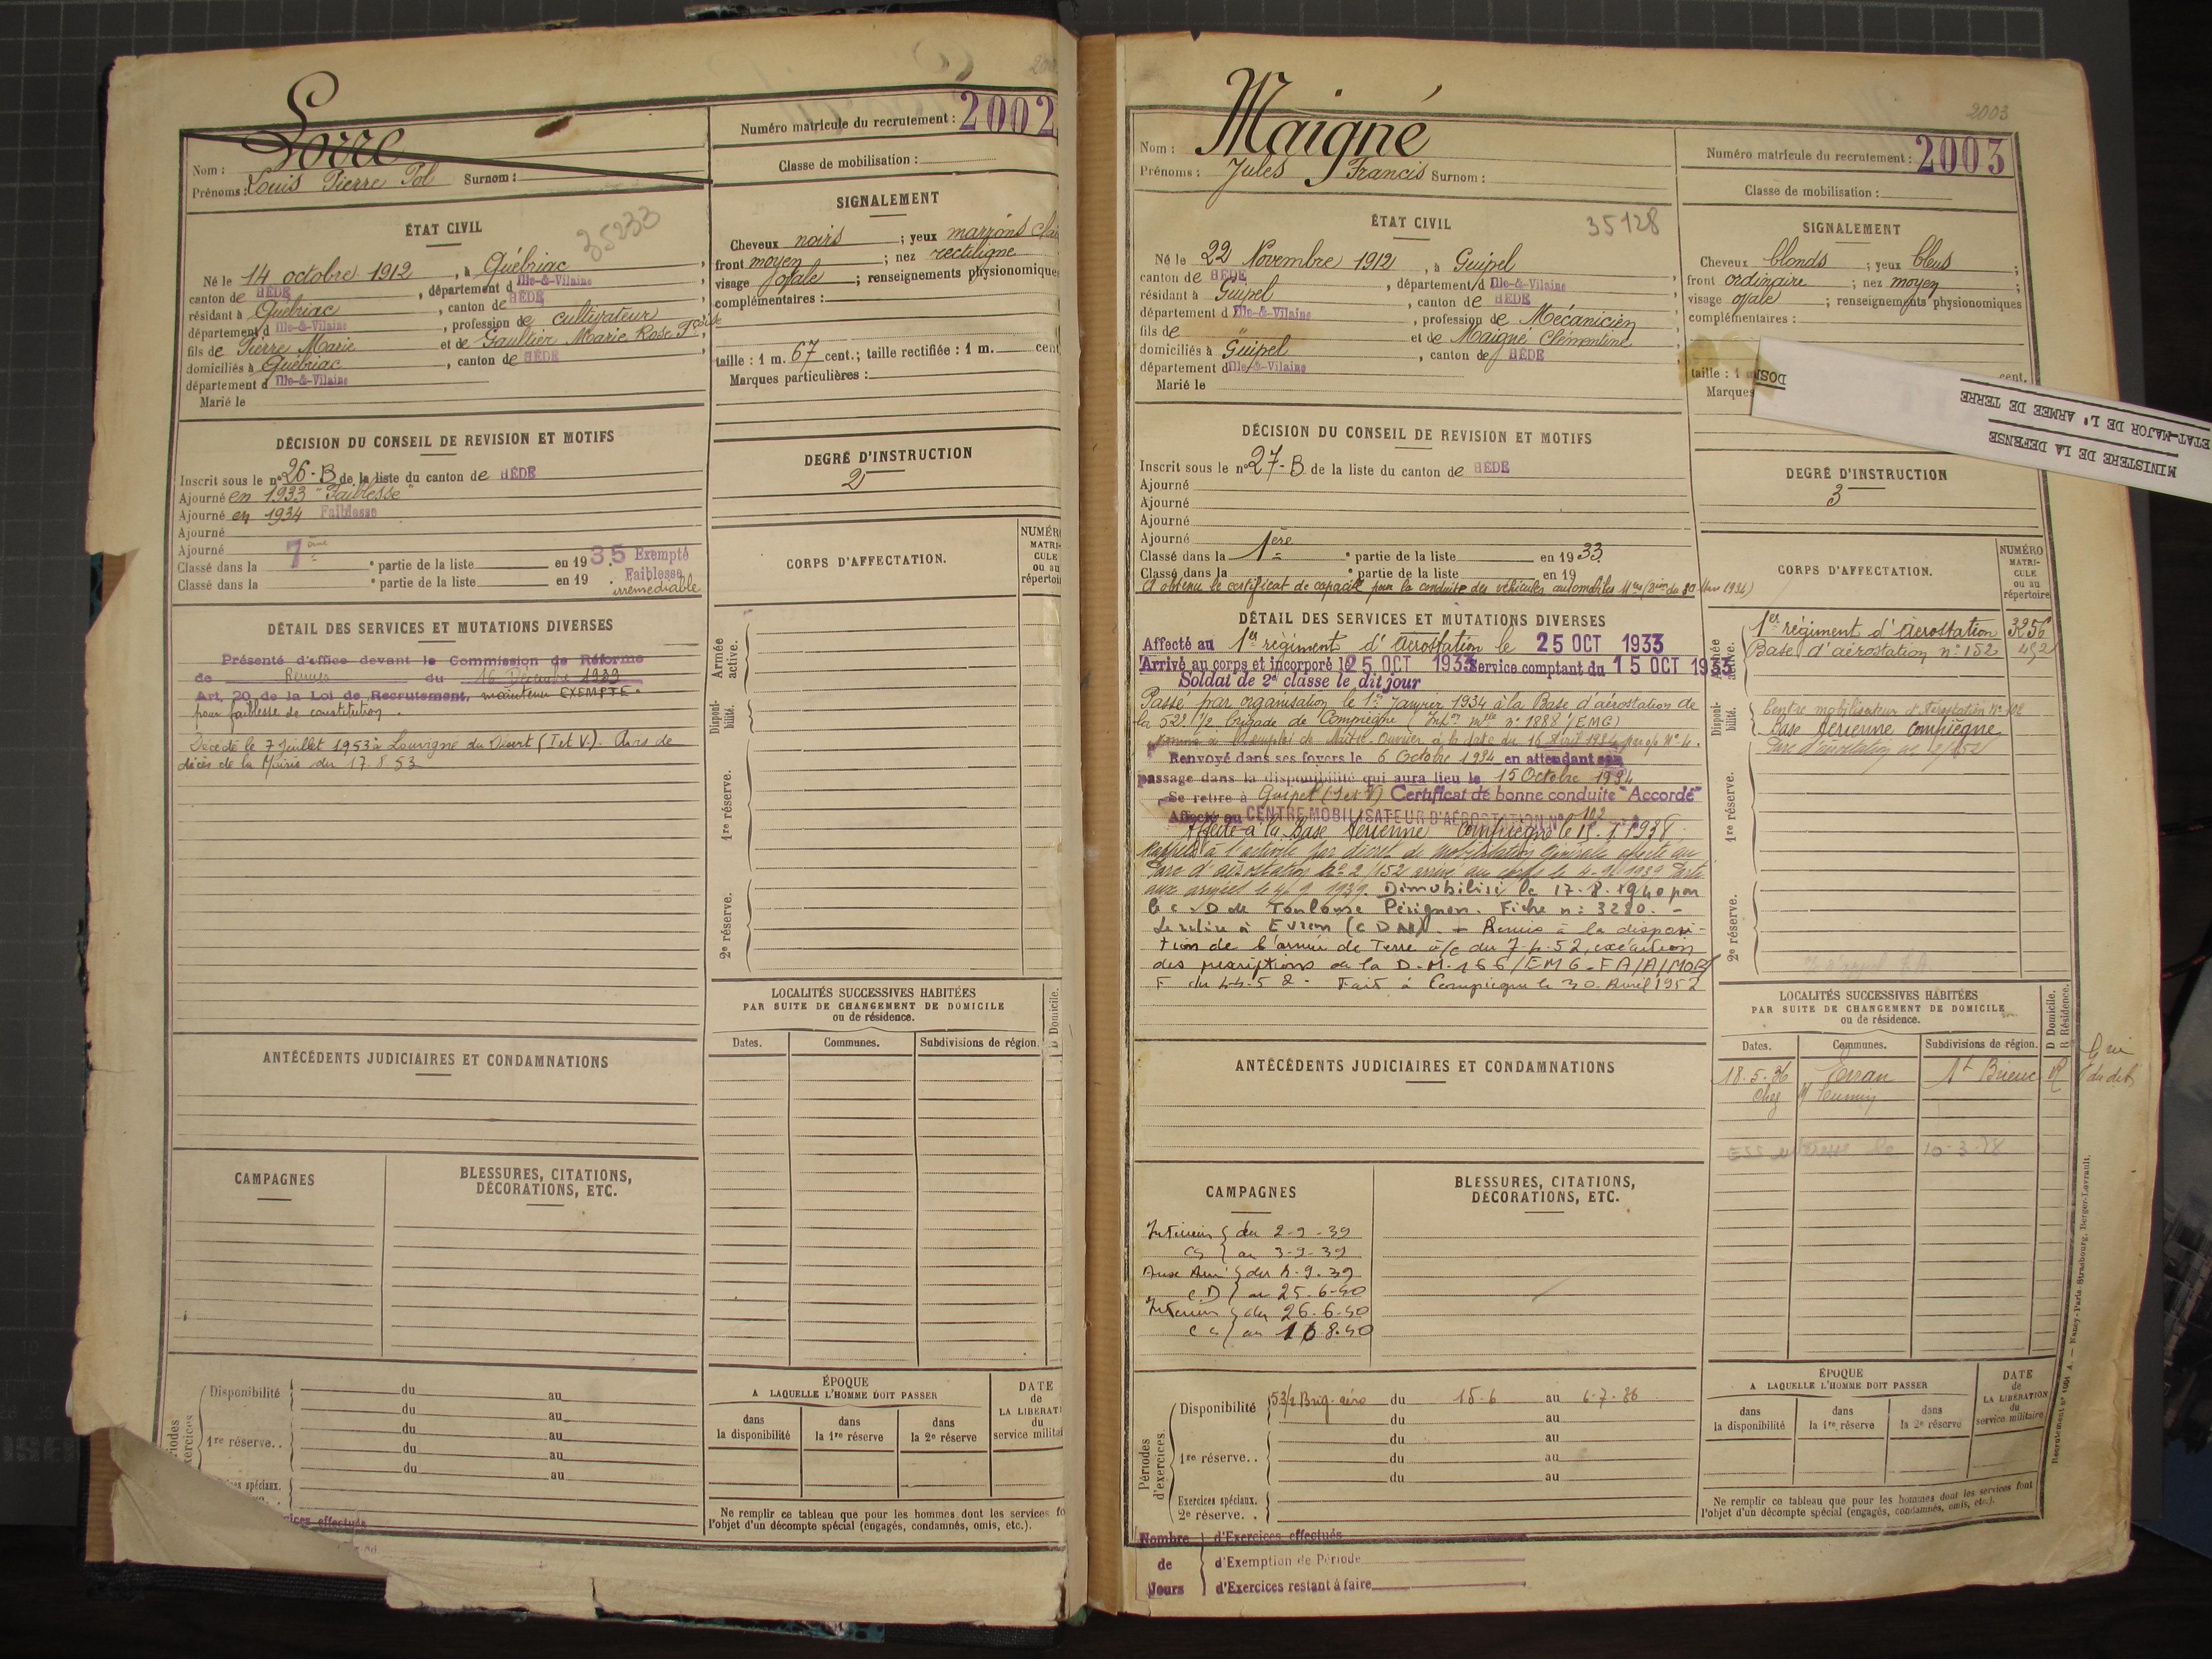 Lorre
Nom :
Prénoms : Louis Pierre Pol Surnom :
Numéro matricule du recrutement : 2002
Classe de mobilisation :
ÉTAT CIVIL
35233
Né le 14 octobre 1912 , à Québriac ,
canton de HÉDÉ , département d Ille-&-Vilaine ,
résidant à Québriac , canton de HÉDÉ ,
département d Ille-&-Vilaine , profession de cultivateur
fils de Pierre Marie et de Gaultier Marie Rose
domiciliés à Québriac , canton de HÉDÉ ,
département d Ille-&-Vilaine
Marié le
SIGNALEMENT
Cheveux noirs ; yeux marrons
front moyen ; nez rectiligne
visage ovale ; renseignements physionomiques
complémentaires :
taille : 1 m. 67 cent.; taille rectifiée : 1 m. cent
Marques particulières :
DÉCISION DU CONSEIL DE REVISION ET MOTIFS
Inscrit sous le n° 26-B de la liste du canton de HÉDÉ
Ajourné en 1933 "Faiblesse"
Ajourné en 1934 Faiblesse
Ajourné
Ajourné
Classé dans la 7ème partie de la liste en 1935 Exempté
Classé dans la partie de la liste en 19 . Faiblesse
irrémédiable
DEGRÉ D'INSTRUCTION
2
CORPS D'AFFECTATION.
NUMÉRO
MATRI-
CULE
ou au
répertoire
DÉTAIL DES SERVICES ET MUTATIONS DIVERSES
Présenté d'office devant le Commission de Réforme
de Rennes du 16 Décembre 1939
Art. 20 de la Loi de Recrutement, maintenu EXEMPTÉ.
pour faiblesse de constitution.
Décédé le 7 Juillet 1953 à Louvigné du Désert (I et V). Avis de
décès de la Mairie du 17.8.53
Armée
active.
Disponi-
bilité.
1re réserve.
2e réserve.
LOCALITÉS SUCCESSIVES HABITÉES
PAR SUITE DE CHANGEMENT DE DOMICILE
ou de résidence.
D Domicile.
Dates. Communes. Subdivisions de région.
ANTÉCÉDENTS JUDICIAIRES ET CONDAMNATIONS
CAMPAGNES
BLESSURES, CITATIONS,
DÉCORATIONS, ETC.
Disponibilité du au
du au
1re réserve.. du au
du au
du au
ÉPOQUE
A LAQUELLE L'HOMME DOIT PASSER
dans
la disponibilité
dans
la 1re réserve
dans
la 2e réserve
DATE
de
LA LIBÉRAT
du
service milita
Ne remplir ce tableau que pour les hommes dont les services fo
l'objet d'un décompte spécial (engagés, condamnés, omis, etc.).
2003
Maigné
Nom :
Prénoms : Jules Francis Surnom :
Numéro matricule du recrutement : 2003
Classe de mobilisation :
ÉTAT CIVIL
35128
Né le 22 Novembre 1912 , à Guipel
canton de HÉDÉ , département d Ille-&-Vilaine ,
résidant à Guipel , canton de HÉDÉ ,
département d Ille-&-Vilaine , profession de Mécanicien
fils de " et de Maigné Clémentine
domiciliés à Guipel , canton de HÉDÉ ,
département d Ille-&-Vilaine
Marié le
SIGNALEMENT
Cheveux blonds ; yeux bleus ;
front ordinaire ; nez moyen ;
visage ovale ; renseignements physionomiques
complémentaires :
taille : 1 m cent.
Marques
DOSS
MINISTERE DE LA DEFENSE
ETAT-MAJOR DE L'ARMEE DE TERRE
DÉCISION DU CONSEIL DE REVISION ET MOTIFS
Inscrit sous le n° 27-B de la liste du canton de HÉDÉ
Ajourné
Ajourné
Ajourné
Ajourné
Classé dans la 1ère partie de la liste en 1933
Classé dans la partie de la liste en 19
A obtenu le certificat de capacité pour la conduite des véhicules automobiles
DEGRÉ D'INSTRUCTION
3
CORPS D'AFFECTATION.
NUMÉRO
MATRI-
CULE
ou au
répertoire
1er régiment d'Aérostation 3256
Base d'aérostation n° 152 452
Centre mobilisateur d'Aérostation N° 102
Base Aérienne Compiègne
Parc d'aérostation n° 2/152
DÉTAIL DES SERVICES ET MUTATIONS DIVERSES
Affecté au 1er régiment d'Aérostation le 25 OCT 1933
Arrivé au corps et incorporé le 25 OCT 1933 Service comptant du 15 OCT 1933
Soldat de 2e classe le dit jour
Passé par organisation le 1er Janvier 1934 à la Base d'aérostation de
la 52e 1/2 brigade de Compiègne n° 1888 /EMG)
Nommé à l'emploi de Maître-Ouvrier à la date du 16 Avril 1934
Renvoyé dans ses foyers le 6 Octobre 1934 en attendant son
passage dans la disponibilité qui aura lieu le 15 Octobre 1934
Se retire à Guipel (I et V) Certificat de bonne conduite "Accordé"
Affecté au CENTRE MOBILISATEUR D'AÉROSTATION N° 102
Affecté à la Base Aérienne Compiègne le
Rappelé à l'activité par décret de mobilisation générale affecté au
Parc d'aérostation N° 2/152 arrivé au corps le 4-9-1939 Parti
aux armées le 4-9-1939. Démobilisé le 17.8.1940 par
le C.D de Toulouse Pérignon. Fiche n: 3280. -
Se retire à Evran (C D N). + Remis à la disposi-
tion de l'armée de Terre à/c du 7-4-52, exécution
des prescriptions de la D.M. 166/EMG-FA/A/MOB/
F du 4-4-52. Fait à Compiègne le 30 Avril 1952
Armée
active.
Disponi-
bilité.
1re réserve.
2e réserve.
LOCALITÉS SUCCESSIVES HABITÉES
PAR SUITE DE CHANGEMENT DE DOMICILE
ou de résidence.
D Domicile.
R Résidence.
Dates. Communes. Subdivisions de région.
18.5.36 Evran St Brieuc R
chez
10-3-38
ANTÉCÉDENTS JUDICIAIRES ET CONDAMNATIONS
CAMPAGNES
Intérieur du 2-9-39
CS au 3-9-39
Aux Arm du 4-9-39
C.D au 25-6-40
Intérieur du 26.6.40
CS au 16 8.40
BLESSURES, CITATIONS,
DÉCORATIONS, ETC.
Périodes
d'exercices.
Disponibilité Brig. aéro du 15-6 au 6-7-36
du au
du au
1re réserve.. du au
du au
Exercices spéciaux.
2e réserve..
Nombre
de
Jours
d'Exercices effectués
d'Exemption de Période
d'Exercices restant à faire
ÉPOQUE
A LAQUELLE L'HOMME DOIT PASSER
dans
la disponibilité
dans
la 1re réserve
dans
la 2e réserve
DATE
de
LA LIBÉRATION
du
service militaire
Ne remplir ce tableau que pour les hommes dont les services font
l'objet d'un décompte spécial (engagés, condamnés, omis, etc.).
Nancy-Paris-Strasbourg, Berger-Levrault.